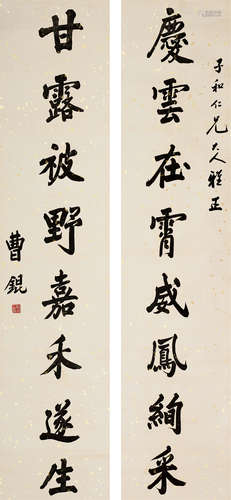 子和仁兄大人雅正
慶雲在霄威鳳絢采
甘露被野嘉禾遂生
曹錕